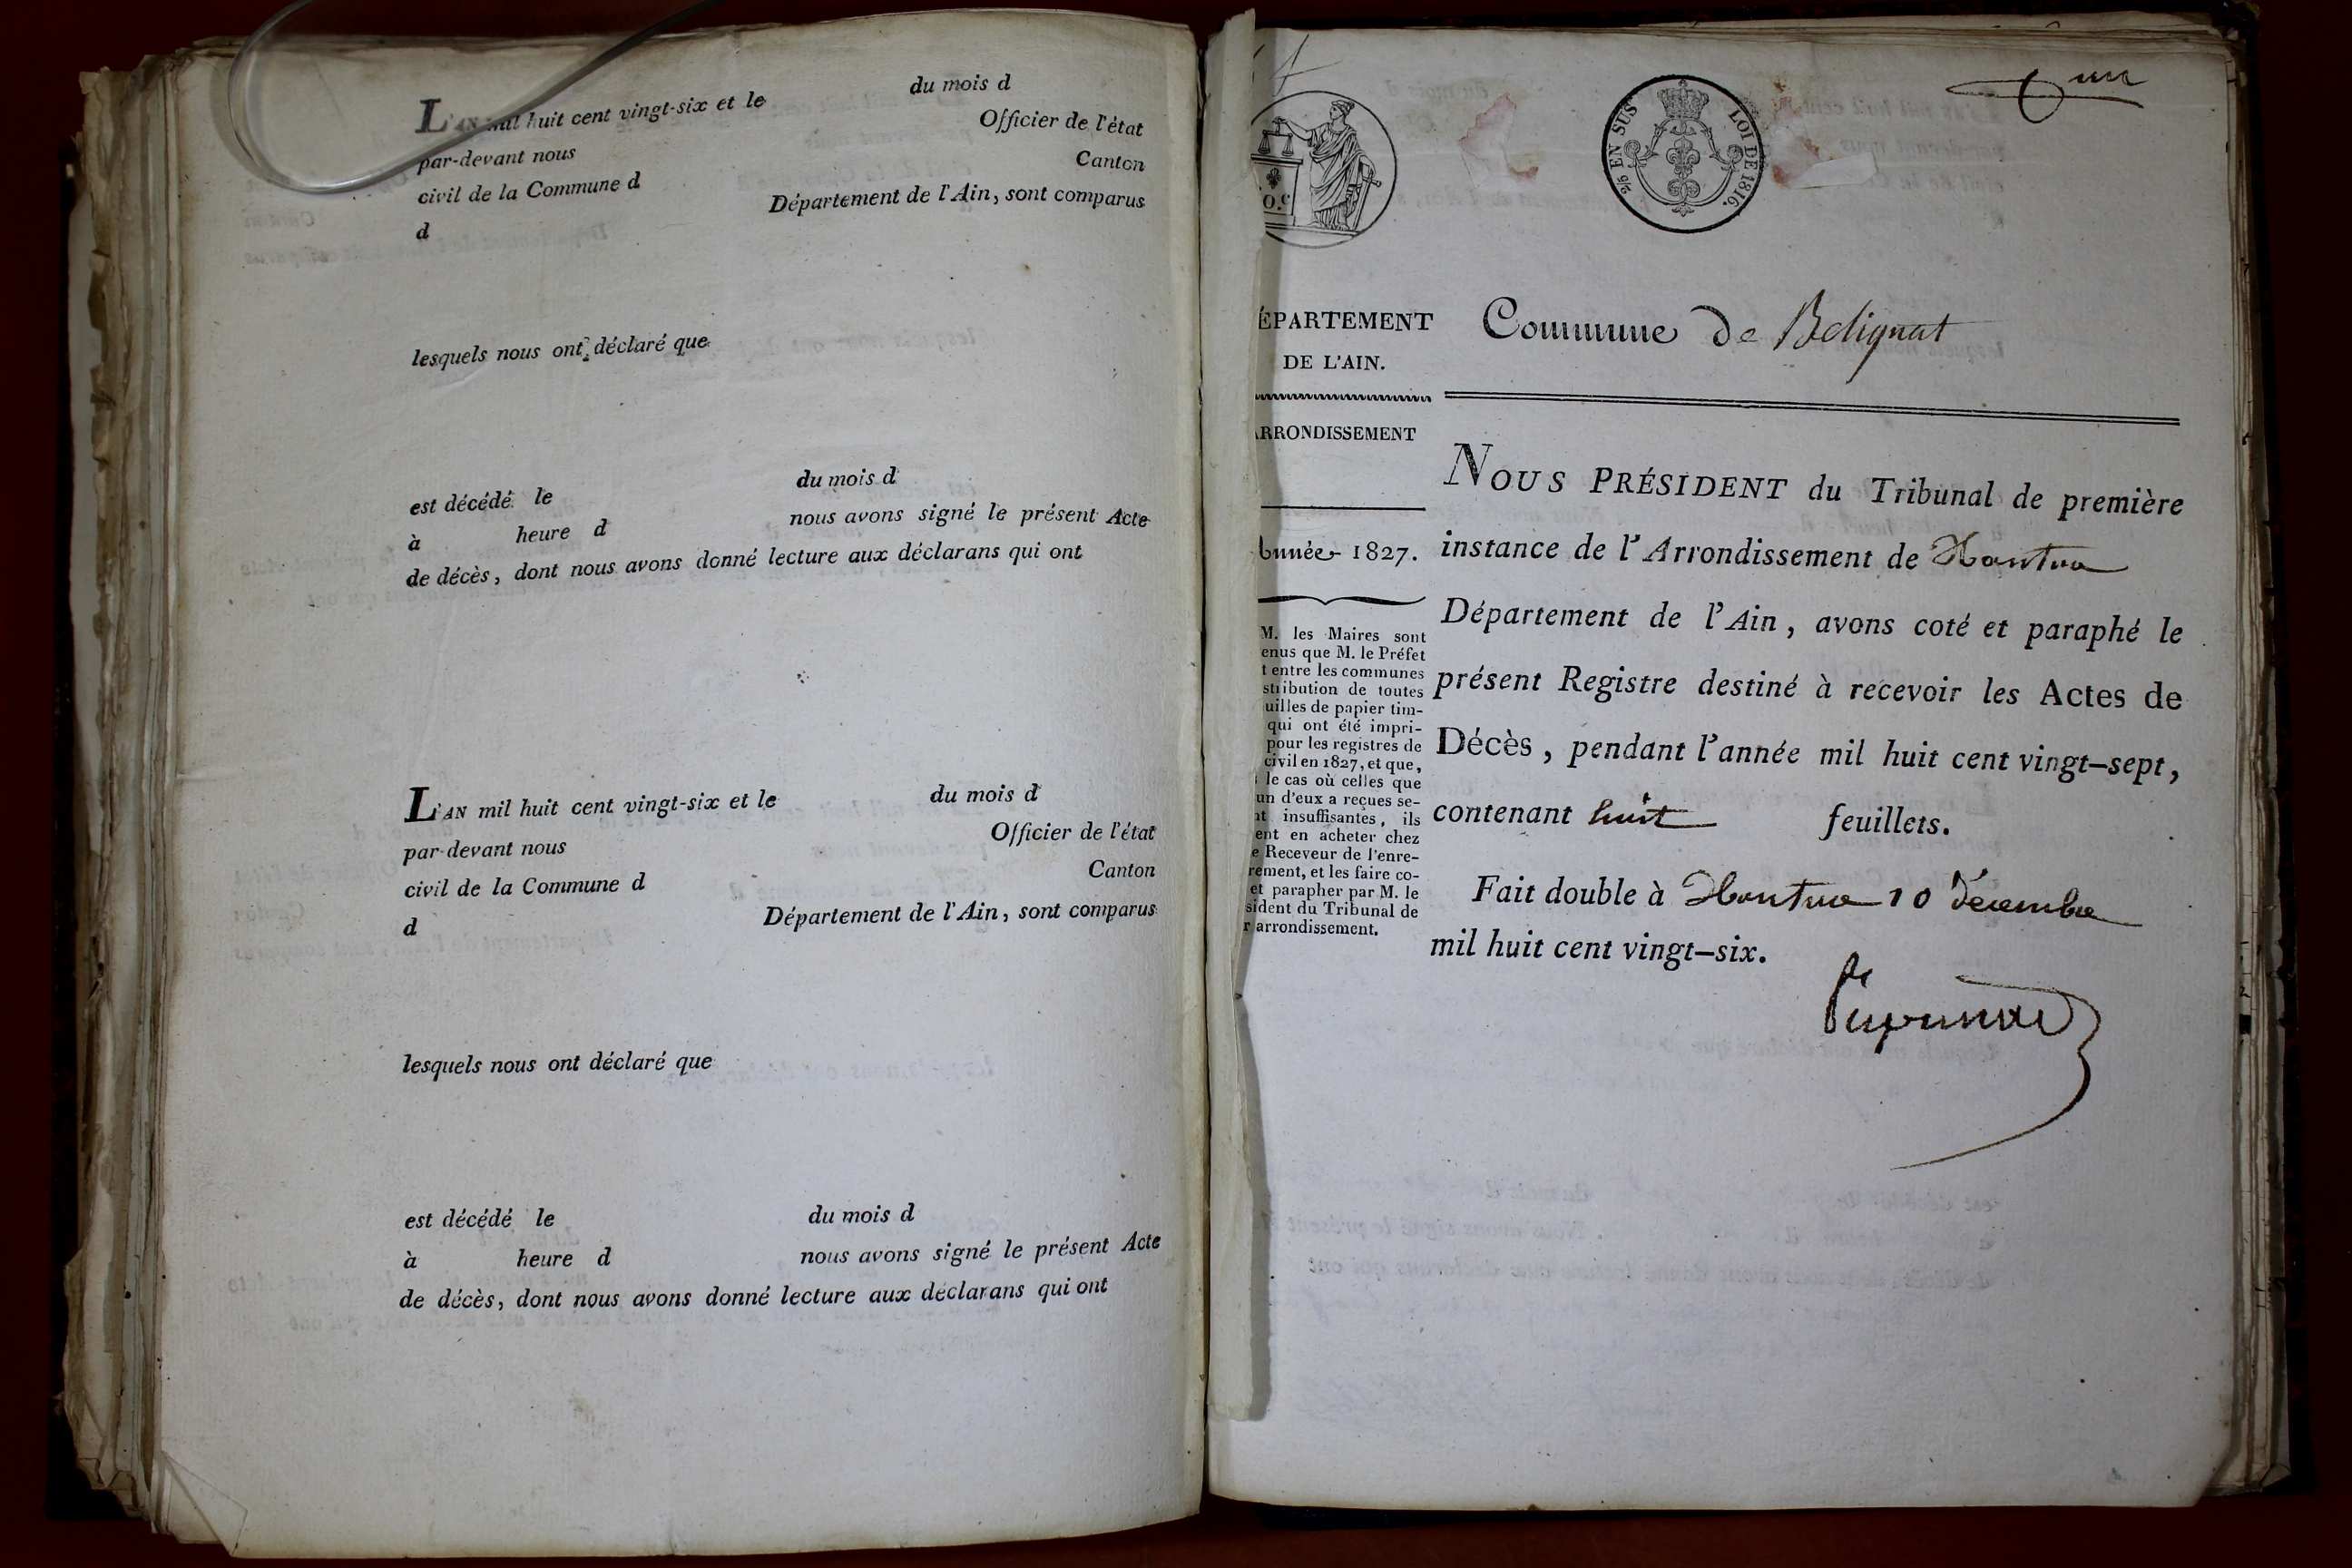 L'AN mil huit cent vingt-six et le du mois d
par-devant nous Officier de l'état
civil de la Commune d Canton
d Département de l'Ain, sont comparus
lesquels nous ont déclaré que
est décédé le du mois d
à heure d nous avons signé le présent Acte
de décès, dont nous avons donné lecture aux déclarans qui ont
L'AN mil huit cent vingt-six et le du mois d
par-devant nous Officier de l'état
civil de la Commune d Canton
d Département de l'Ain, sont comparus
lesquels nous ont déclaré que
est décédé le du mois d
à heure d nous avons signé le présent Acte
de décès, dont nous avons donné lecture aux déclarans qui ont
un
EN SUS LOI DE 1816.
ÉPARTEMENT
DE L'AIN.
RRONDISSEMENT
Année 1827.
M. les Maires sont
enus que M. le Préfet
t entre les communes
stribution de toutes
uilles de papier tim-
qui ont été impri-
pour les registres de
civil en 1827, et que,
le cas où celles que
un d'eux a reçues se-
nt insuffisantes, ils
ent en acheter chez
e Receveur de l'enre-
rement, et les faire co-
et parapher par M. le
sident du Tribunal de
r arrondissement.
Commune de Belignat
NOUS PRÉSIDENT du Tribunal de première
instance de l'Arrondissement de Nantua
Département de l'Ain, avons coté et paraphé le
présent Registre destiné à recevoir les Actes de
Décès, pendant l'année mil huit cent vingt-sept,
contenant huit feuillets.
Fait double à Nantua 10 décembre
mil huit cent vingt-six.